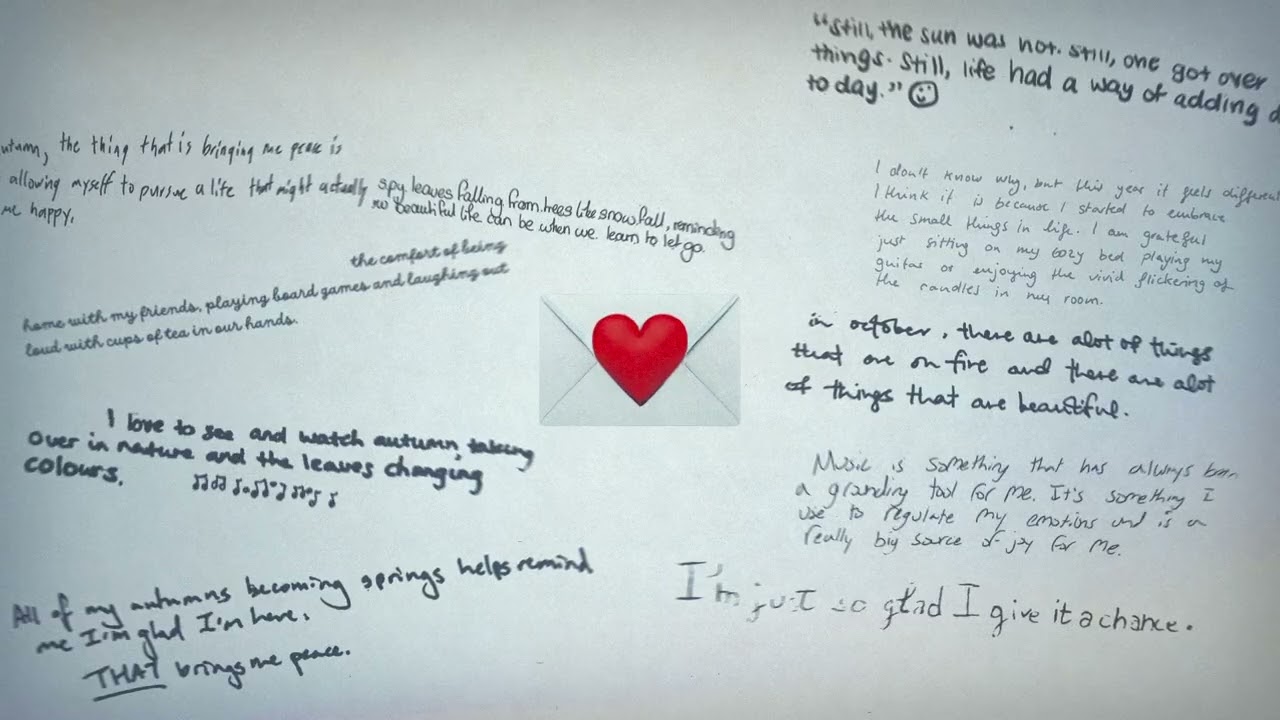 "Still, the sun was hot. Still, one got over
things. Still, life had a way of adding
to day." ☺
the thing that is bringing me peace is
allowing myself to pursue a life that might actually
me happy.
spy leaves falling from trees like snowfall, reminding
beautiful life can be when we. learn to let go.
the comfort of being
home with my friends, playing board games and laughing out
loud with cups of tea in our hands.
I love to see and watch autumn, taking
over in nature and the leaves changing
colours.
All of my autumns becoming springs helps remind
me I'm glad I'm here.
THAT brings me peace.
I don't know why, but this year it feels different
I think it is because I started to embrace
the small things in life. I am grateful
just sitting on my cozy bed playing my
guitar or enjoying the vivid flickering of
the candles in my room.
in october, there are alot of things
that are on fire and there are alot
of things that are beautiful.
Music is something that has always been
a grounding tool for me. It's something I
use to regulate my emotions and is a
really big source of joy for me.
I'm just so glad I give it a chance.